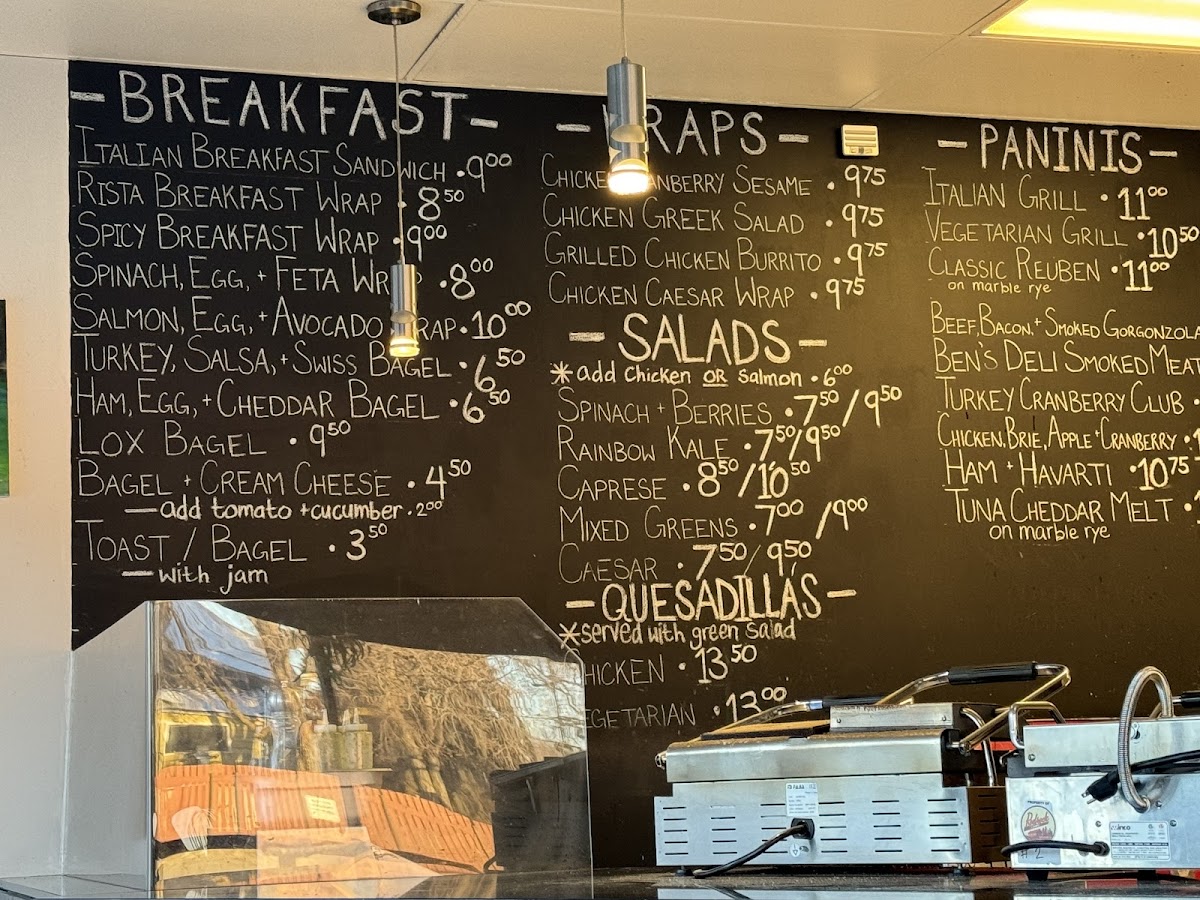 - BREAKFAST -
ITALIAN BREAKFAST SANDWICH • 9.00
RISTA BREAKFAST WRAP • 8.50
SPICY BREAKFAST WRAP • 9.00
SPINACH, EGG, + FETA WR P • 8.00
SALMON, EGG, + AVOCADO RAP • 10.00
TURKEY, SALSA, + SWISS BAGEL • 6.50
HAM, EGG, + CHEDDAR BAGEL • 6.50
LOX BAGEL • 9.50
BAGEL + CREAM CHEESE • 4.50
— add tomato + cucumber • 2.00
TOAST / BAGEL • 3.50
— with jam
- WRAPS -
CHICKE ANBERRY SESAME • 9.75
CHICKEN GREEK SALAD • 9.75
GRILLED CHICKEN BURRITO • 9.75
CHICKEN CAESAR WRAP • 9.75
- SALADS -
* add chicken OR salmon • 6.00
SPINACH + BERRIES • 7.50 / 9.50
RAINBOW KALE • 7.50 / 9.50
CAPRESE • 8.50 / 10.50
MIXED GREENS • 7.00 / 9.00
CAESAR • 7.50 / 9.50
- QUESADILLAS -
* served with green salad
CHICKEN • 13.50
EGETARIAN • 13.00
- PANINIS -
ITALIAN GRILL • 11.00
VEGETARIAN GRILL • 10.50
CLASSIC REUBEN • 11.00
on marble rye
BEEF, BACON, + SMOKED GORGONZOLA
BEN'S DELI SMOKED MEAT
TURKEY CRANBERRY CLUB •
CHICKEN, BRIE, APPLE + CRANBERRY •
HAM + HAVARTI • 10.75
TUNA CHEDDAR MELT •
on marble rye
PROPERTY OF
# 2